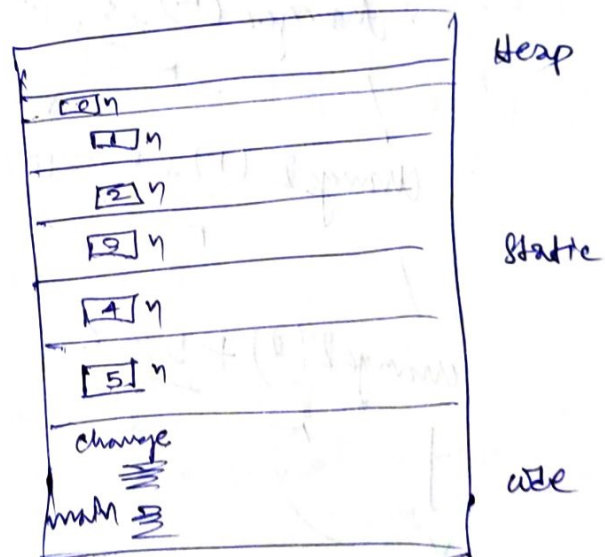 Heap
0 n
1 n
2 n
3 n
Static
4 n
5 n
change
main
code